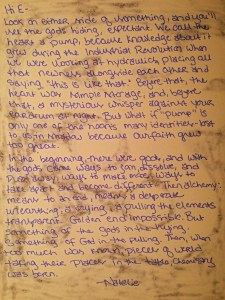 Hi E-
Look on either side of something, and you'll
see the gods hiding, expectant. We call the
heart a pump, because knowledge about it
grew during the Industrial Revolution when
we were looking at hydraulics, placing all
that newness alongside each other and
saying "This is like that." Before that, the
heart was simple storage, and, bigger
that, a mysterious whisper against your
eardrum at night. But what if "pump" is
only one of the heart's many identities- lost
to us in because our faith grew
too great.
In the beginning, there were gods, and with
the gods came ways to can, dissolve, and
purify. Many ways to make more, ways to
take spirit and become different. Then alchemy:
means to an end, reasons is desperate
unearthing, a trying, a pulling the elements
transparent. Golden end impossible. But
something of the gods in the trying,
something of God in the pulling. Then, when
too much was known, pieces of world
taking their places in the table, Chemistry
was born.
-Natalie